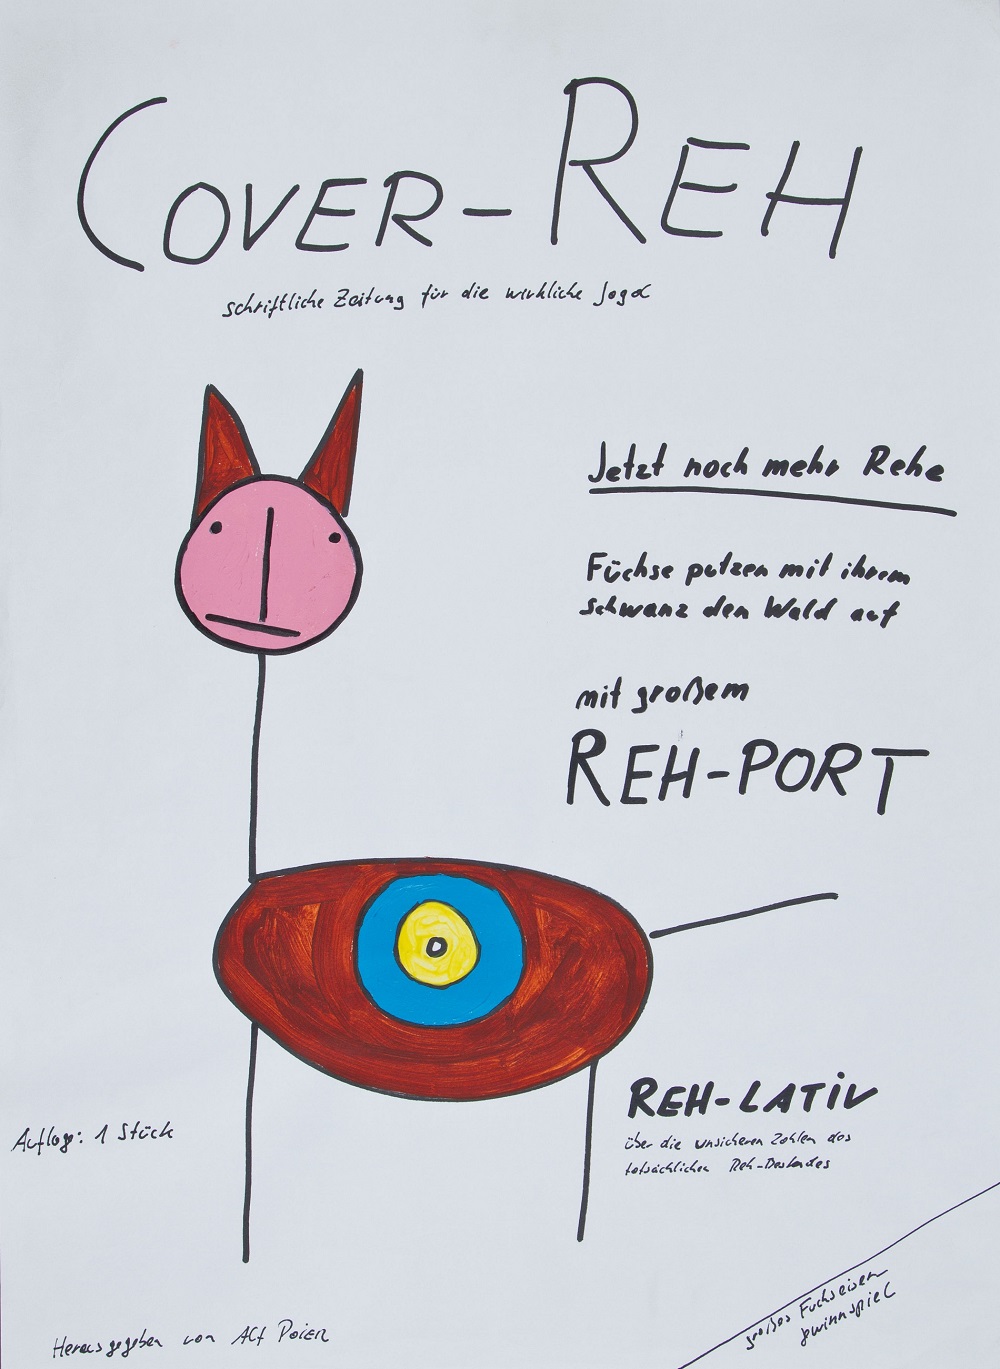 COVER-REH
schriftliche Zeitung für die wirkliche Jagd
Jetzt noch mehr Rehe
Füchse putzen mit ihrem
Schwanz den Wald auf
mit großem
REH-PORT
REH-LATIV
über die unsicheren Zahlen des
tatsächlichen Reh-Bestandes
Auflage: 1 Stück
großes Fuchseisen
gewinnspiel
Herausgegeben von Alf POIER